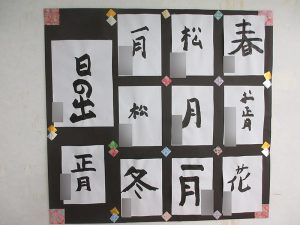 春
松
一月
日の出
お正月
月
松
花
一月
冬
正月